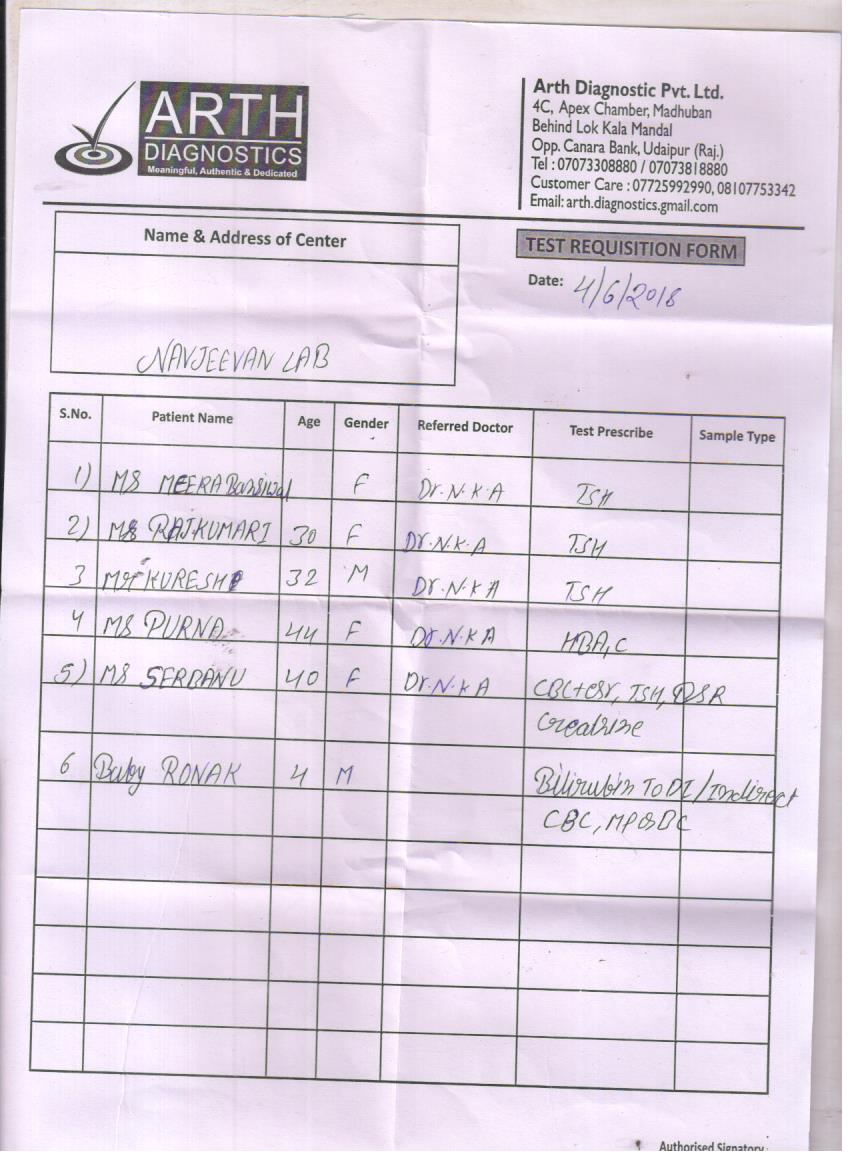 ARTH
DIAGNOSTICS
Meaningful, Authentic & Dedicated
Arth Diagnostic Pvt. Ltd.
4C, Apex Chamber, Madhuban
Behind Lok Kala Mandal
Opp. Canara Bank, Udaipur (Raj.)
Tel : 07073308880 / 07073818880
Customer Care : 07725992990, 08107753342
Email: arth.diagnostics.gmail.com
Name & Address of Center
NAVJEEVAN LAB
TEST REQUISITION FORM
Date: 4/6/2018
S.No. Patient Name Age Gender Referred Doctor Test Prescribe Sample Type
1) MS MEERA F Dr.N.K.A TSH
2) MS RAJKUMARI 30 F Dr.N.K.A TSH
3 KURESHI 32 M Dr.N.K.A TSH
4 MS PURNA 44 F Dr.N.K.A HBA1C
5) MS SERBANU 40 F Dr.N.K.A CBC+esr, TSH,
6 Baby RONAK 4 M Bilirubin To DI/Indirect
CBC,
Authorised Signatory